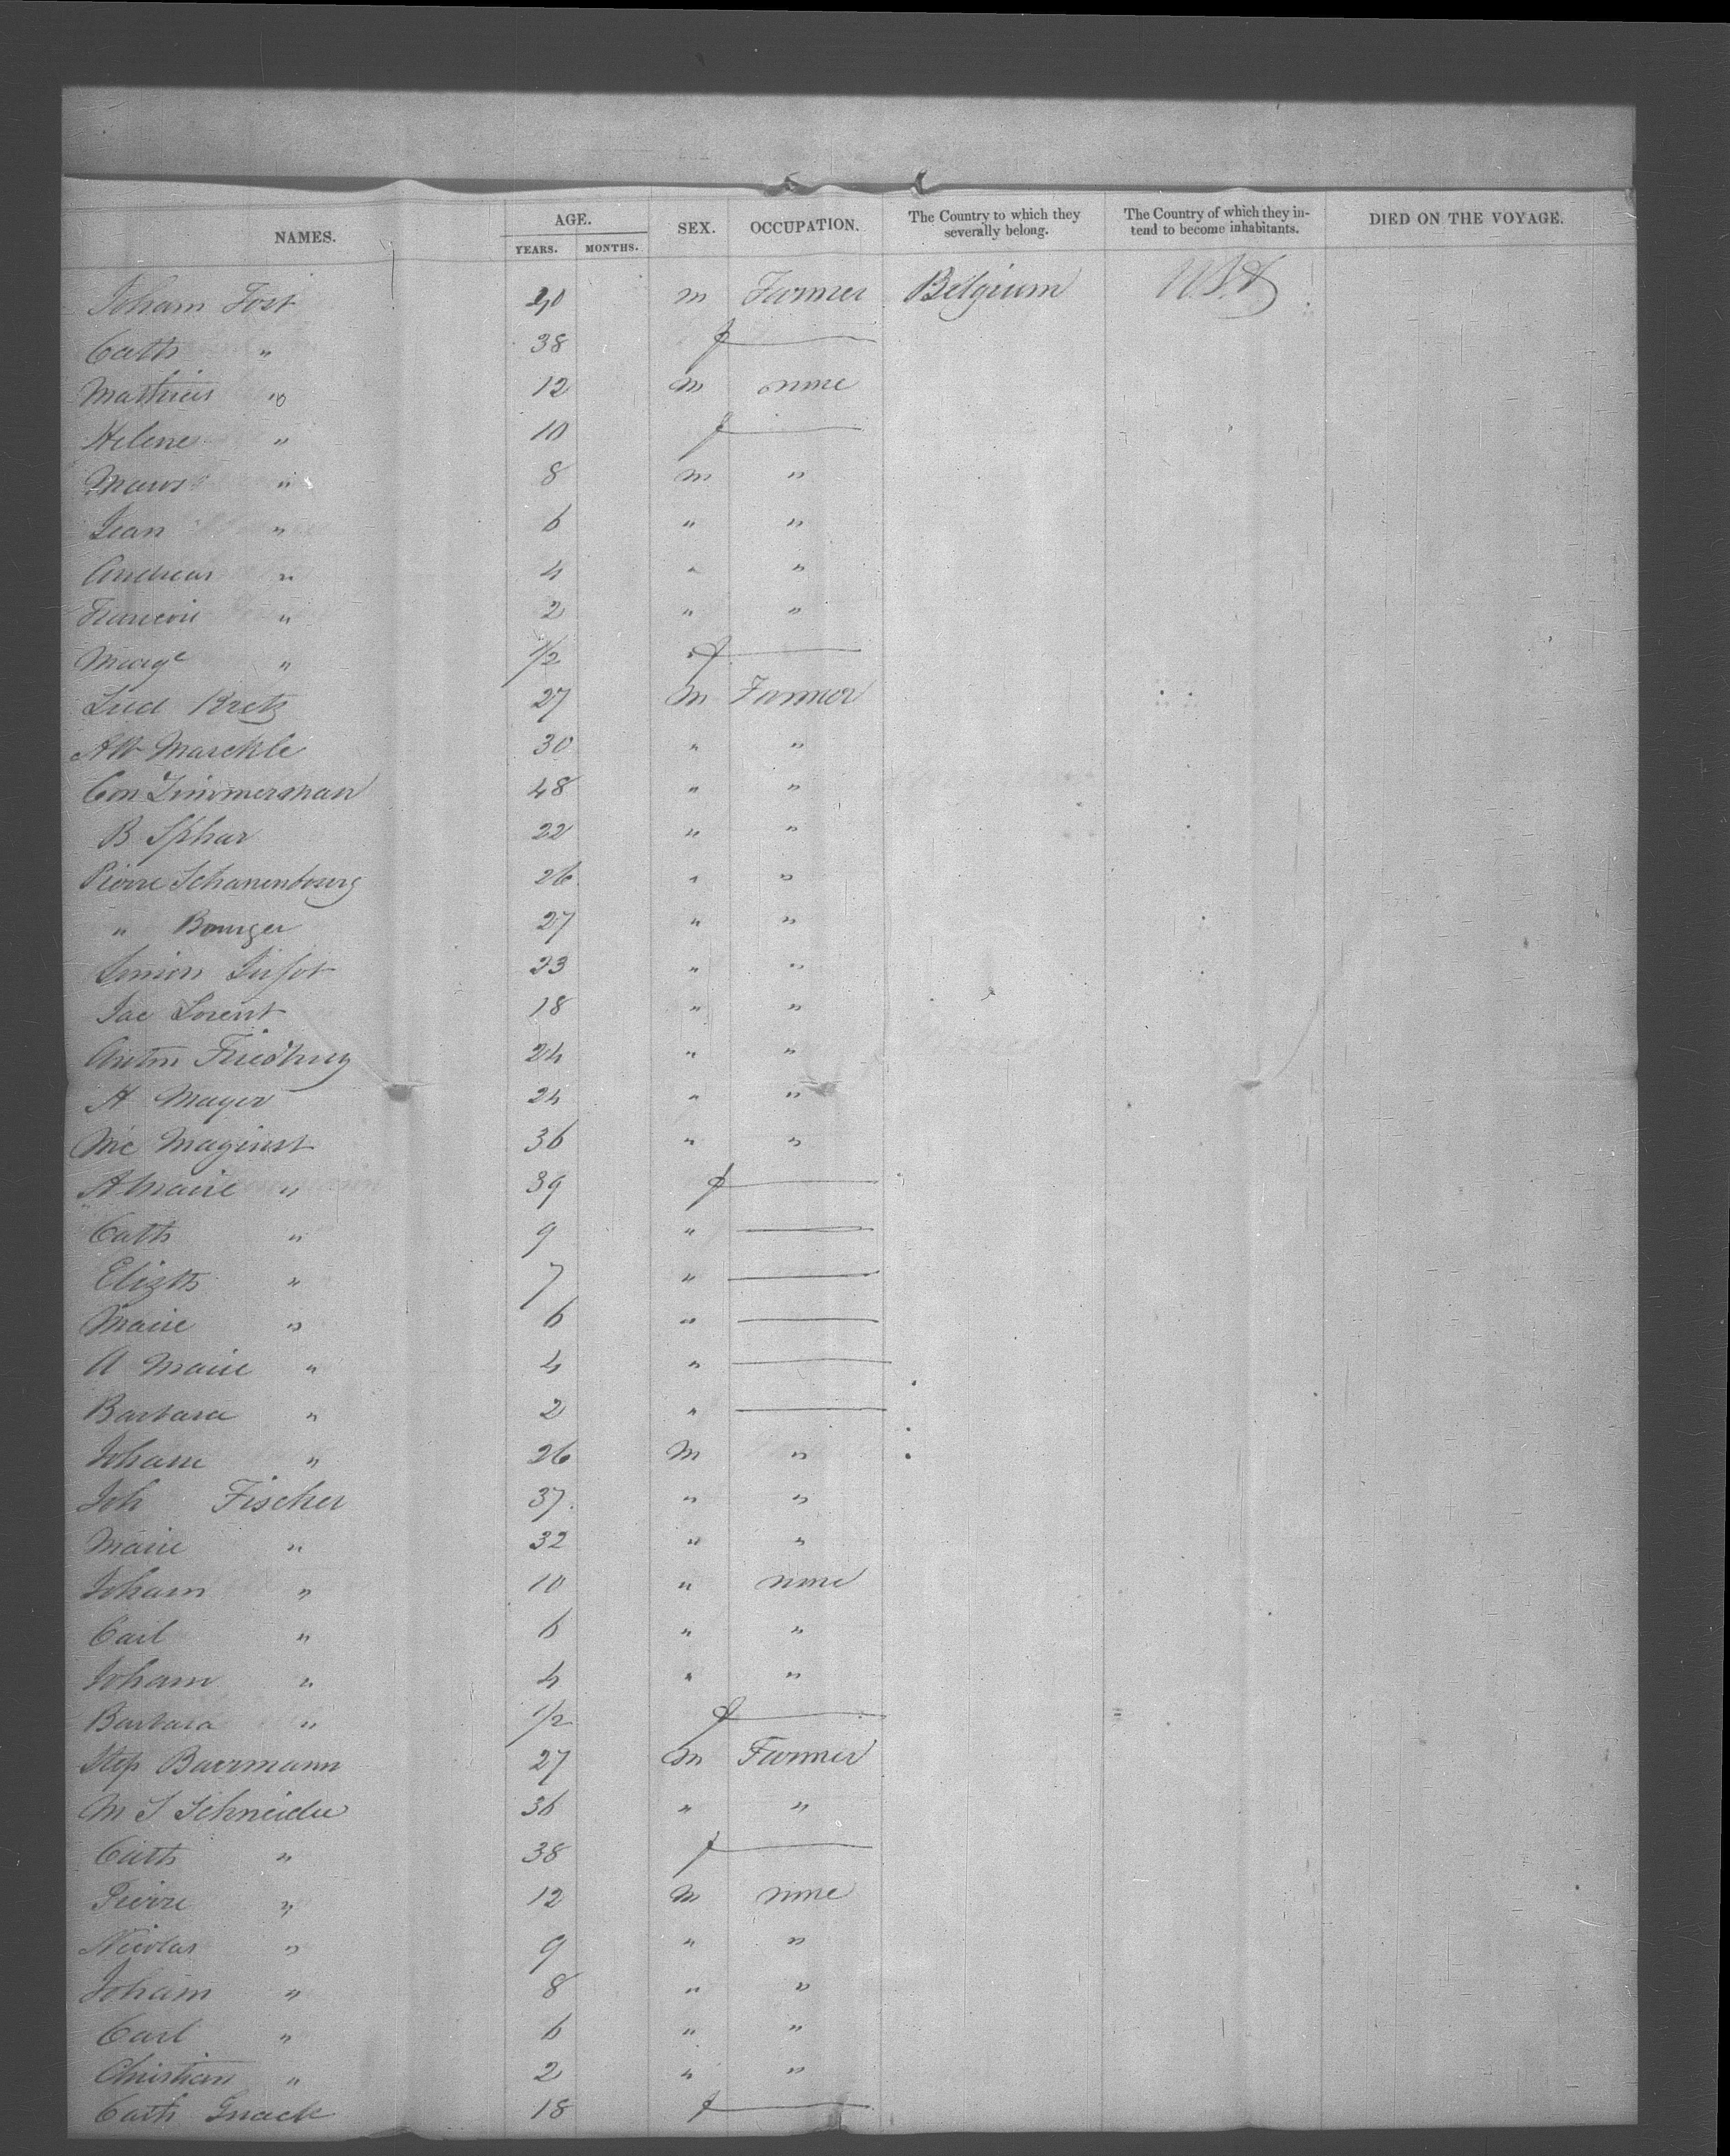 NAMES. AGE. YEARS. MONTHS. SEX. OCCUPATION. The Country to which they severally belong. The Country of which they intend to become inhabitants. DIED ON THE VOYAGE.
Joham Fost 40 m Farmer Belgium U.S.A
Cath " 38 f —
Mathieu " 12 m none
Helene " 10 f —
" 8 m "
Jean " 6 " "
Andreas " 4 " "
Francois " 2 " "
Marge " 1/2 f —
Lud Kretz 27 m Farmer
Marckle 30 " "
Con Zimmerman 48 " "
B Sphar 22 " "
Pierre Schanenbourg 26 " "
" Bourger 27 " "
Simon 23 " "
Jac Lorent 18 " "
Anton 24 " "
A Mayer 24 " "
Nic Maginst 36 " "
A Marie " 39 f —
Cath " 9 " —
Elizth " 7 " —
Marie " 6 " —
A Marie " 4 " —
Barbara " 2 " —
Joham " 26 m "
Joh Fischer 37 " "
Marie " 32 " "
Joham " 10 " none
Carl " 6 " "
Joham " 4 " "
Barbara " 1/2 f —
Step Baermann 27 m Farmer
M J Schneider 36 " "
Cath " 38 f —
Pierre " 12 m none
Nicolas " 9 " "
Joham " 8 " "
Carl " 6 " "
Christian " 2 " "
Cath Gnack 18 f —